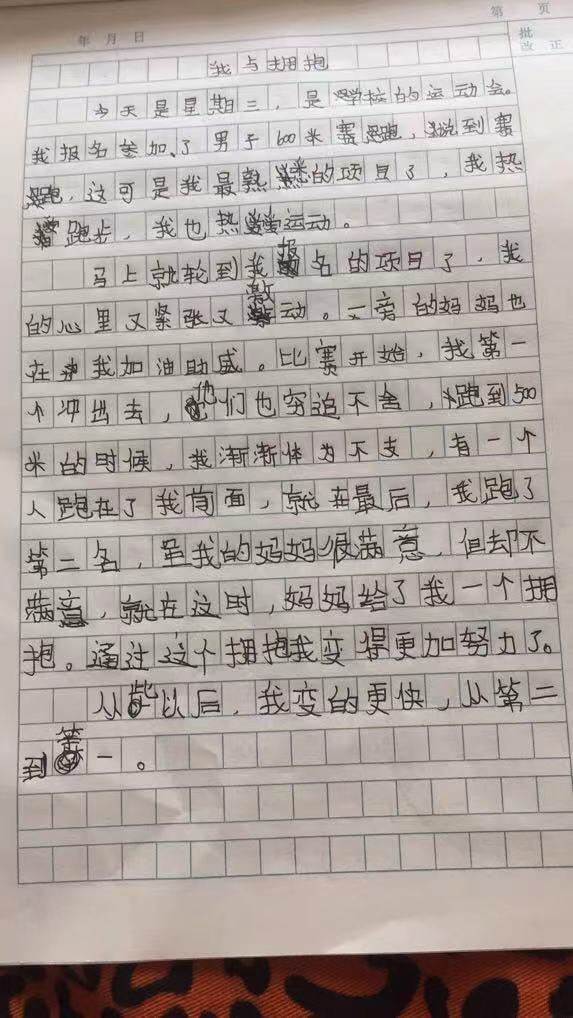 第 页
年 月 日
批
改 正
我与拥抱
今天是星期三，是学校的运动会。
我报名参加了男子600米赛跑，说到赛
跑，这可是我最熟悉的项目了，我热
爱跑步，我也热爱运动。
马上就轮到我报名的项目了，我
的心里又紧张又激动。一旁的妈妈也
在为我加油助威。比赛开始，我第一
个冲出去，他们也穷追不舍，跑到500
米的时候，我渐渐体为不支，有一个
人跑在了我前面，就在最后，我跑了
第二名，虽我的妈妈很满意，但却不
满意，就在这时，妈妈给了我一个拥
抱。通过这个拥抱我变得更加努力了。
从此以后，我变的更快，从第二
到第一。